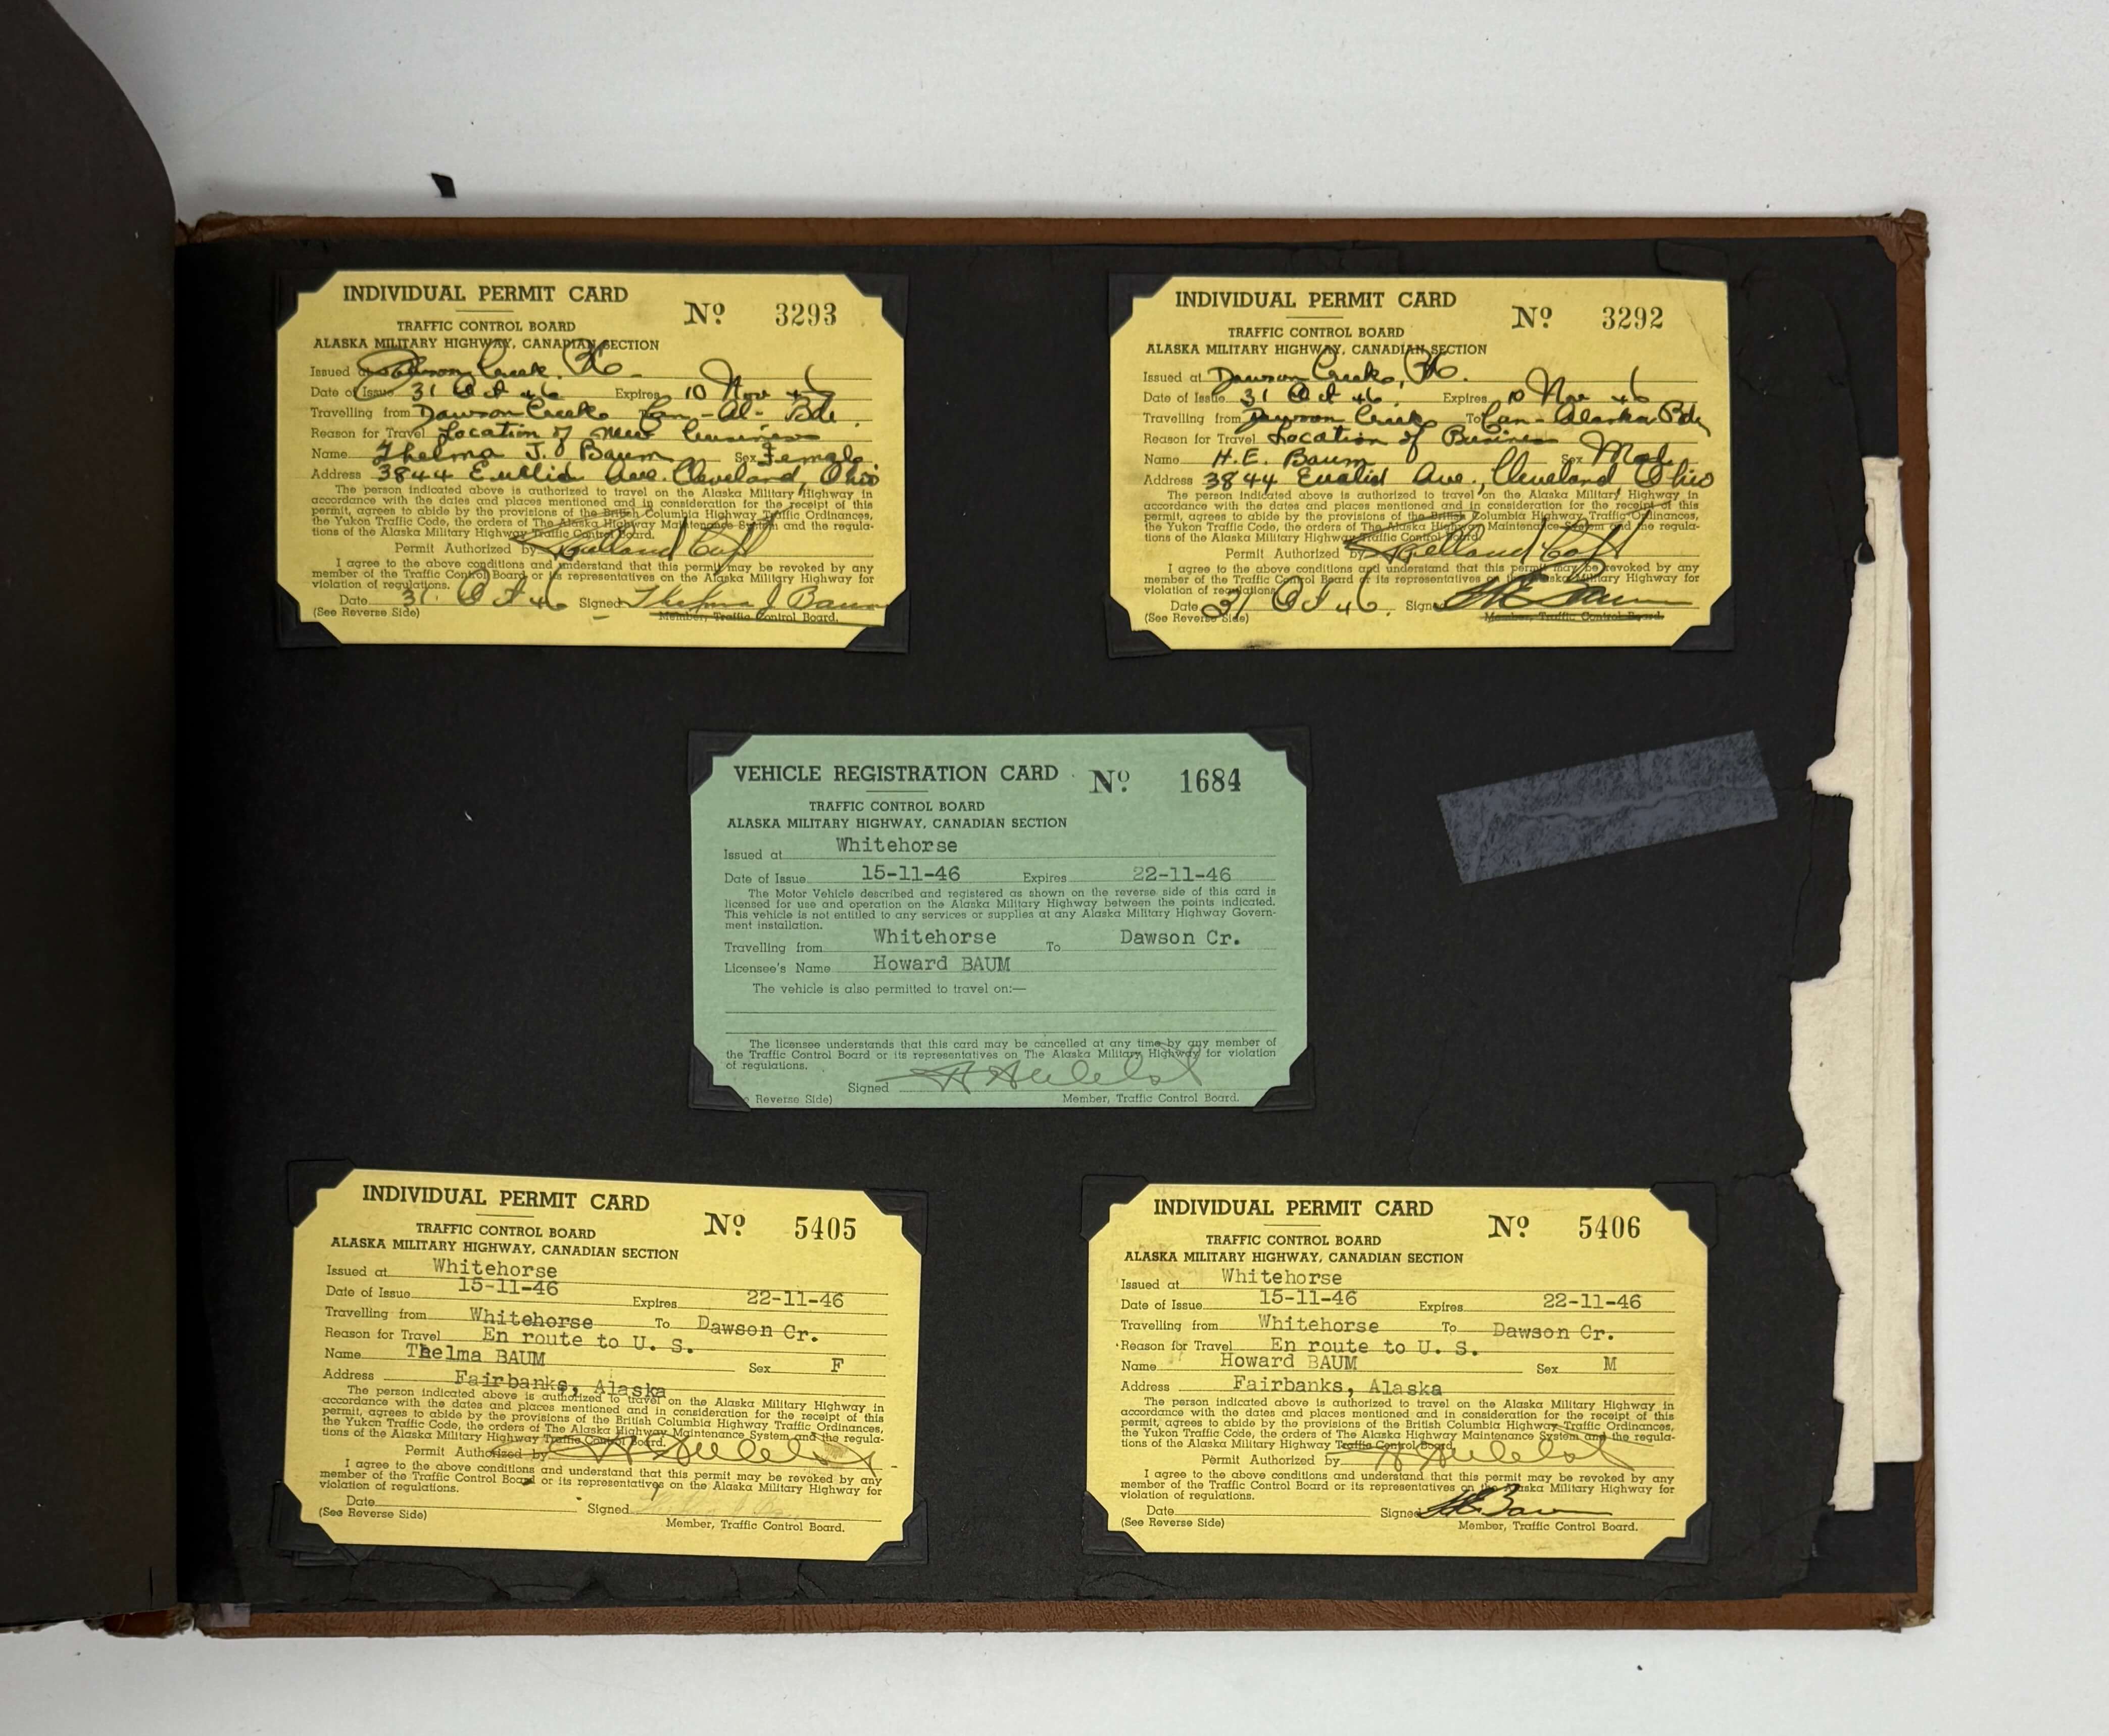 INDIVIDUAL PERMIT CARD
Nº 3293
TRAFFIC CONTROL BOARD
ALASKA MILITARY HIGHWAY, CANADIAN SECTION
Issued at Dawson Creek, BC.
Date of Issue 31 Oct 46 Expires 10 Nov 46
Travelling from Dawson Creek To Can-Al-Bdr.
Reason for Travel Location of new business
Name Thelma J. Baum Sex Female
Address 3844 Euclid Ave. Cleveland, Ohio
The person indicated above is authorized to travel on the Alaska Military Highway in
accordance with the dates and places mentioned and in consideration for the receipt of this
permit, agrees to abide by the provisions of the British Columbia Highway Traffic Ordinances,
the Yukon Traffic Code, the orders of The Alaska Highway Maintenance System and the regula-
tions of the Alaska Military Highway Traffic Control Board.
Permit Authorized by
I agree to the above conditions and understand that this permit may be revoked by any
member of the Traffic Control Board or its representatives on the Alaska Military Highway for
violation of regulations.
Date 31 Oct 46 Signed Thelma J Baum
(See Reverse Side) Member, Traffic Control Board.
INDIVIDUAL PERMIT CARD
Nº 3292
TRAFFIC CONTROL BOARD
ALASKA MILITARY HIGHWAY, CANADIAN SECTION
Issued at Dawson Creek, BC.
Date of Issue 31 Oct 46 Expires 10 Nov 46
Travelling from Dawson Creek To Can-Alaska Bdr
Reason for Travel Location of Business
Name H.E. Baum Sex Male
Address 3844 Euclid Ave., Cleveland Ohio
The person indicated above is authorized to travel on the Alaska Military Highway in
accordance with the dates and places mentioned and in consideration for the receipt of this
permit, agrees to abide by the provisions of the British Columbia Highway Traffic Ordinances,
the Yukon Traffic Code, the orders of The Alaska Highway Maintenance System and the regula-
tions of the Alaska Military Highway Traffic Control Board.
Permit Authorized by
I agree to the above conditions and understand that this permit may be revoked by any
member of the Traffic Control Board or its representatives on the Alaska Military Highway for
violation of regulations.
Date 31 Oct 46. Signed HE Baum
(See Reverse Side) Member, Traffic Control Board.
VEHICLE REGISTRATION CARD
Nº 1684
TRAFFIC CONTROL BOARD
ALASKA MILITARY HIGHWAY, CANADIAN SECTION
Issued at Whitehorse
Date of Issue 15-11-46 Expires 22-11-46
The Motor Vehicle described and registered as shown on the reverse side of this card is
licensed for use and operation on the Alaska Military Highway between the points indicated.
This vehicle is not entitled to any services or supplies at any Alaska Military Highway Govern-
ment installation.
Travelling from Whitehorse To Dawson Cr.
Licensee's Name Howard BAUM
The vehicle is also permitted to travel on:—
The licensee understands that this card may be cancelled at any time by any member of
the Traffic Control Board or its representatives on The Alaska Military Highway for violation
of regulations.
Signed
e Reverse Side) Member, Traffic Control Board.
INDIVIDUAL PERMIT CARD
Nº 5405
TRAFFIC CONTROL BOARD
ALASKA MILITARY HIGHWAY, CANADIAN SECTION
Issued at Whitehorse
Date of Issue 15-11-46 Expires 22-11-46
Travelling from Whitehorse To Dawson Cr.
Reason for Travel En route to U. S.
Name Thelma BAUM Sex F
Address Fairbanks, Alaska
The person indicated above is authorized to travel on the Alaska Military Highway in
accordance with the dates and places mentioned and in consideration for the receipt of this
permit, agrees to abide by the provisions of the British Columbia Highway Traffic Ordinances,
the Yukon Traffic Code, the orders of The Alaska Highway Maintenance System and the regula-
tions of the Alaska Military Highway Traffic Control Board.
Permit Authorized by
I agree to the above conditions and understand that this permit may be revoked by any
member of the Traffic Control Board or its representatives on the Alaska Military Highway for
violation of regulations.
Date Signed
(See Reverse Side) Member, Traffic Control Board.
INDIVIDUAL PERMIT CARD
Nº 5406
TRAFFIC CONTROL BOARD
ALASKA MILITARY HIGHWAY, CANADIAN SECTION
Issued at Whitehorse
Date of Issue 15-11-46 Expires 22-11-46
Travelling from Whitehorse To Dawson Cr.
Reason for Travel En route to U. S.
Name Howard BAUM Sex M
Address Fairbanks, Alaska
The person indicated above is authorized to travel on the Alaska Military Highway in
accordance with the dates and places mentioned and in consideration for the receipt of this
permit, agrees to abide by the provisions of the British Columbia Highway Traffic Ordinances,
the Yukon Traffic Code, the orders of The Alaska Highway Maintenance System and the regula-
tions of the Alaska Military Highway Traffic Control Board.
Permit Authorized by
I agree to the above conditions and understand that this permit may be revoked by any
member of the Traffic Control Board or its representatives on the Alaska Military Highway for
violation of regulations.
Date Signed HE Baum
(See Reverse Side) Member, Traffic Control Board.